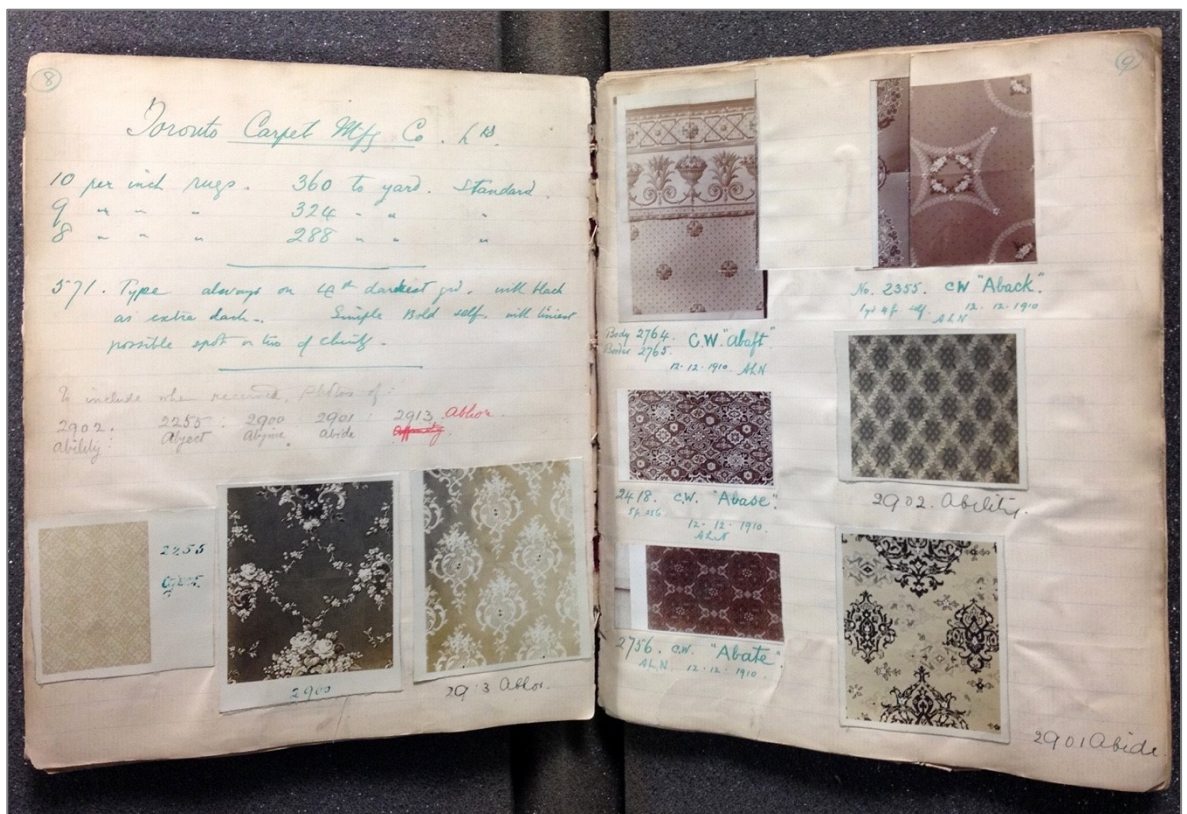 8
Toronto Carpet Mfg Co. Ld.
10 per inch rugs. 360 to yard. Standard.
9 " " " 324 " " "
8 " " " 288 " " "
571. Type always on 4th darkest grd. with black
as extra dark. Simple Bold self with tiniest
possible spot or two of
To include when received, photos of:
2902. 2255: 2900 2901: 2913. Abhor.
Ability: Abject Abjure. Abide
2255
2900
2913 Abhor.
9
Body 2764. C.W. "Abaft"
Border 2765.
12.12.1910 ALN
No. 2355. CW "Aback".
12.12.1910
ALN
2418. C.W. "Abase".
12.12.1910.
ALN
2902. Ability.
2756. C.W. "Abate"
ALN. 12.12.1910.
2901 Abide